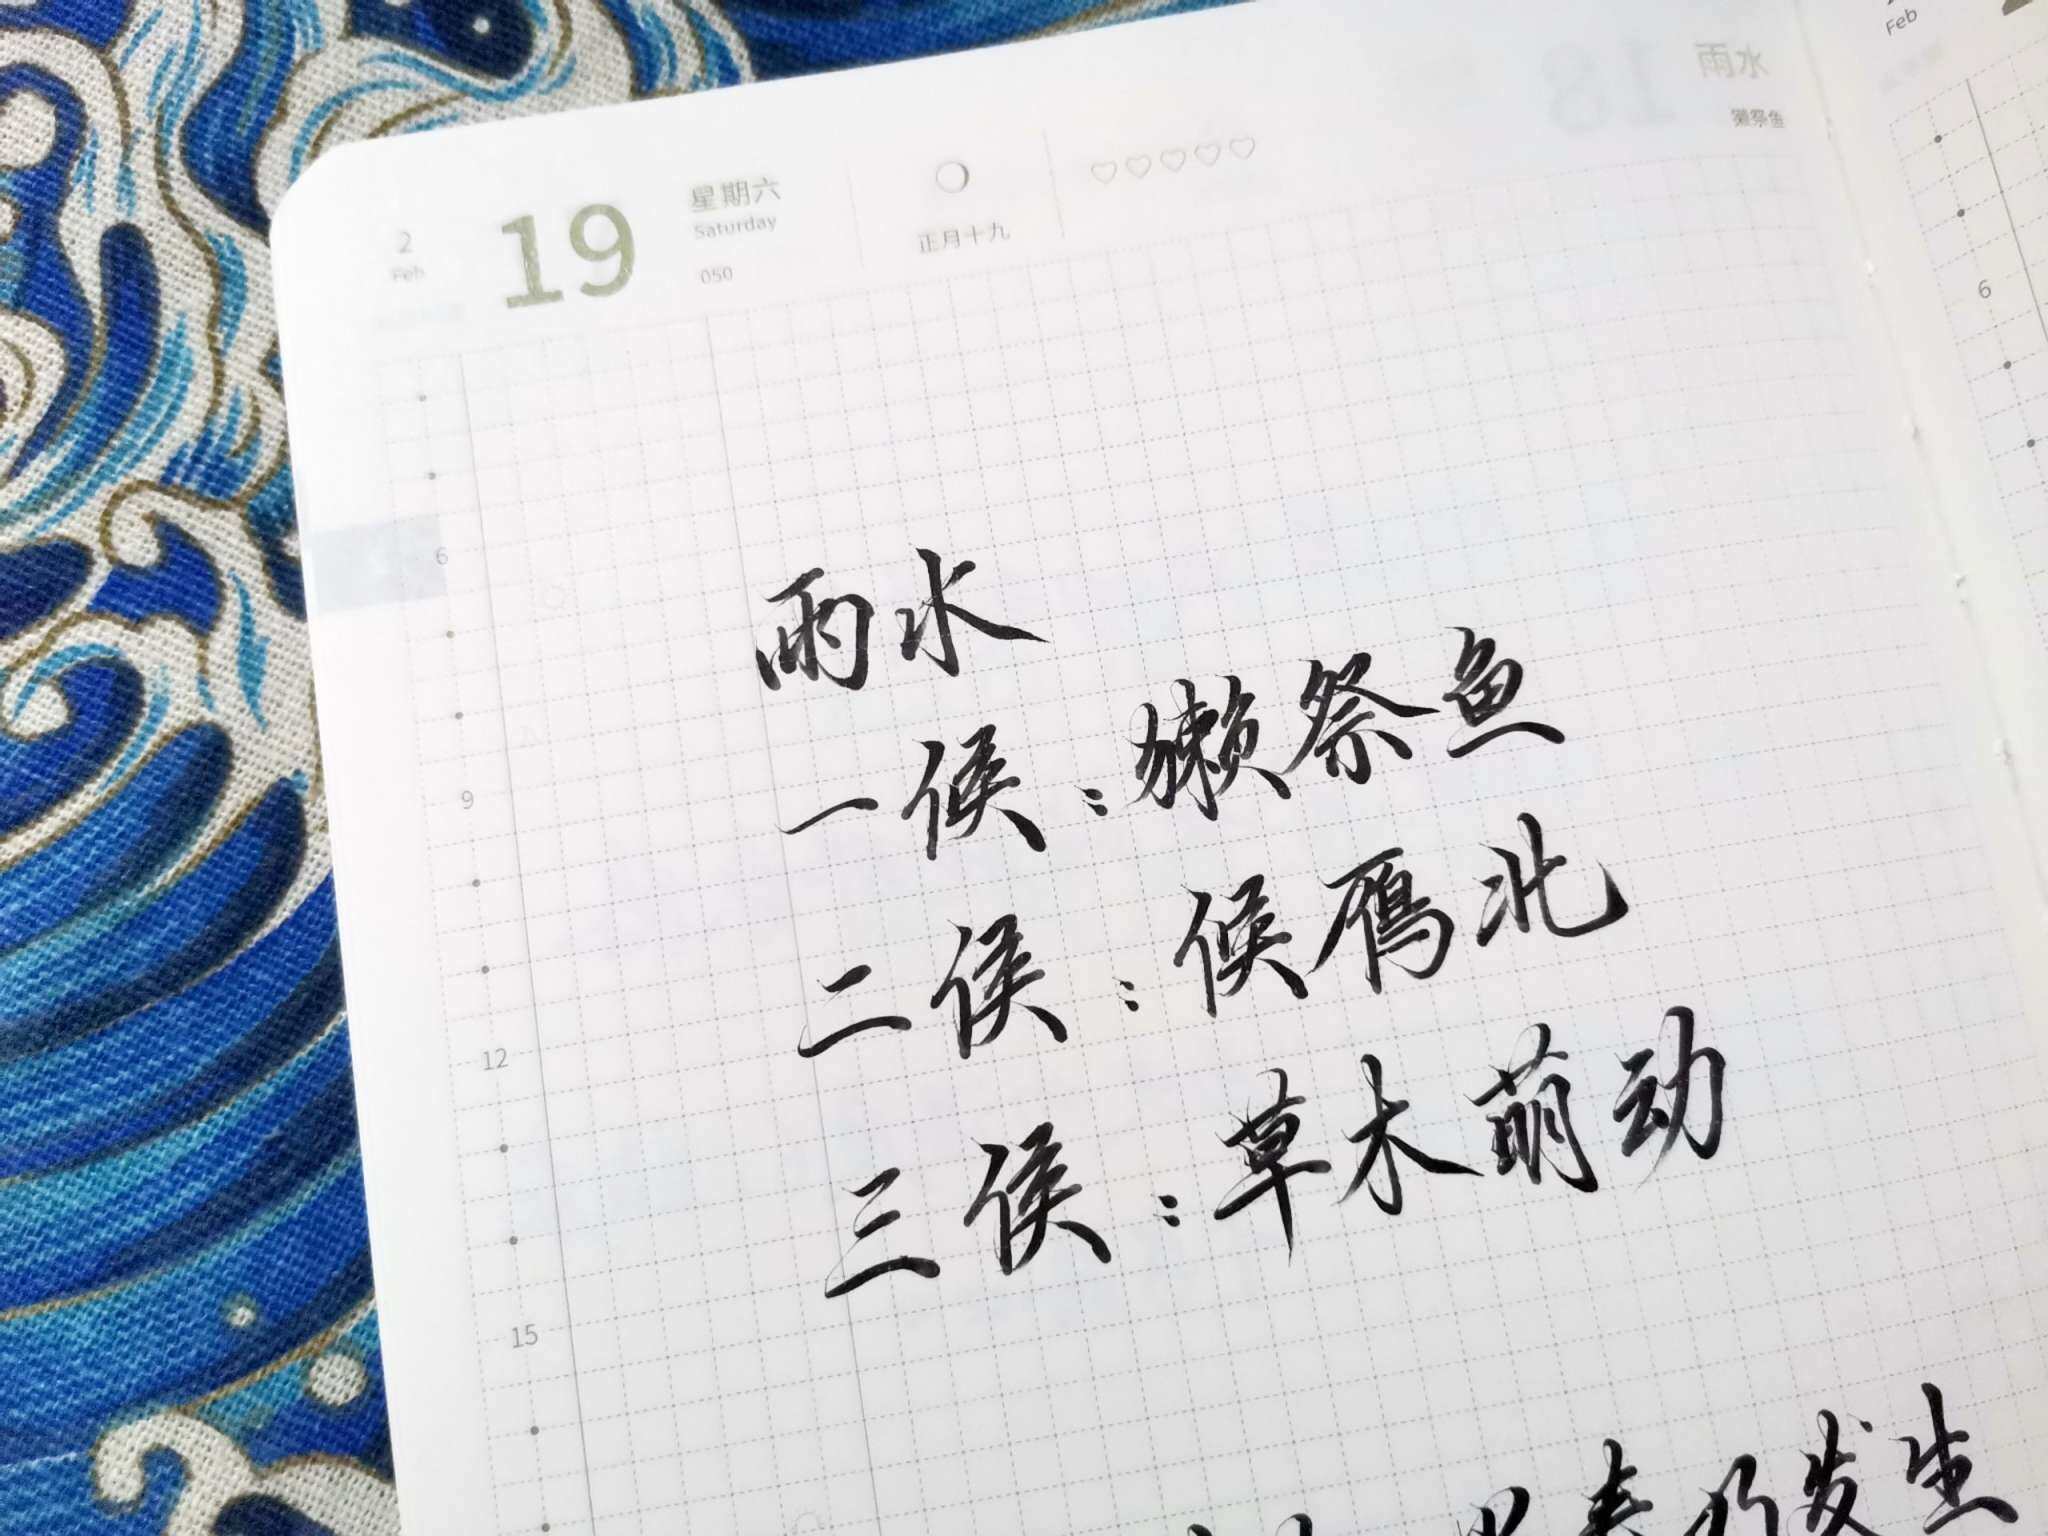 2
Feb
19
星期六
Saturday
050
正月十九
雨水
獭祭鱼
Feb
6
6
9
12
15
雨水
一候：獭祭鱼
二候：候鴈北
三候：草木萌动
春乃发生